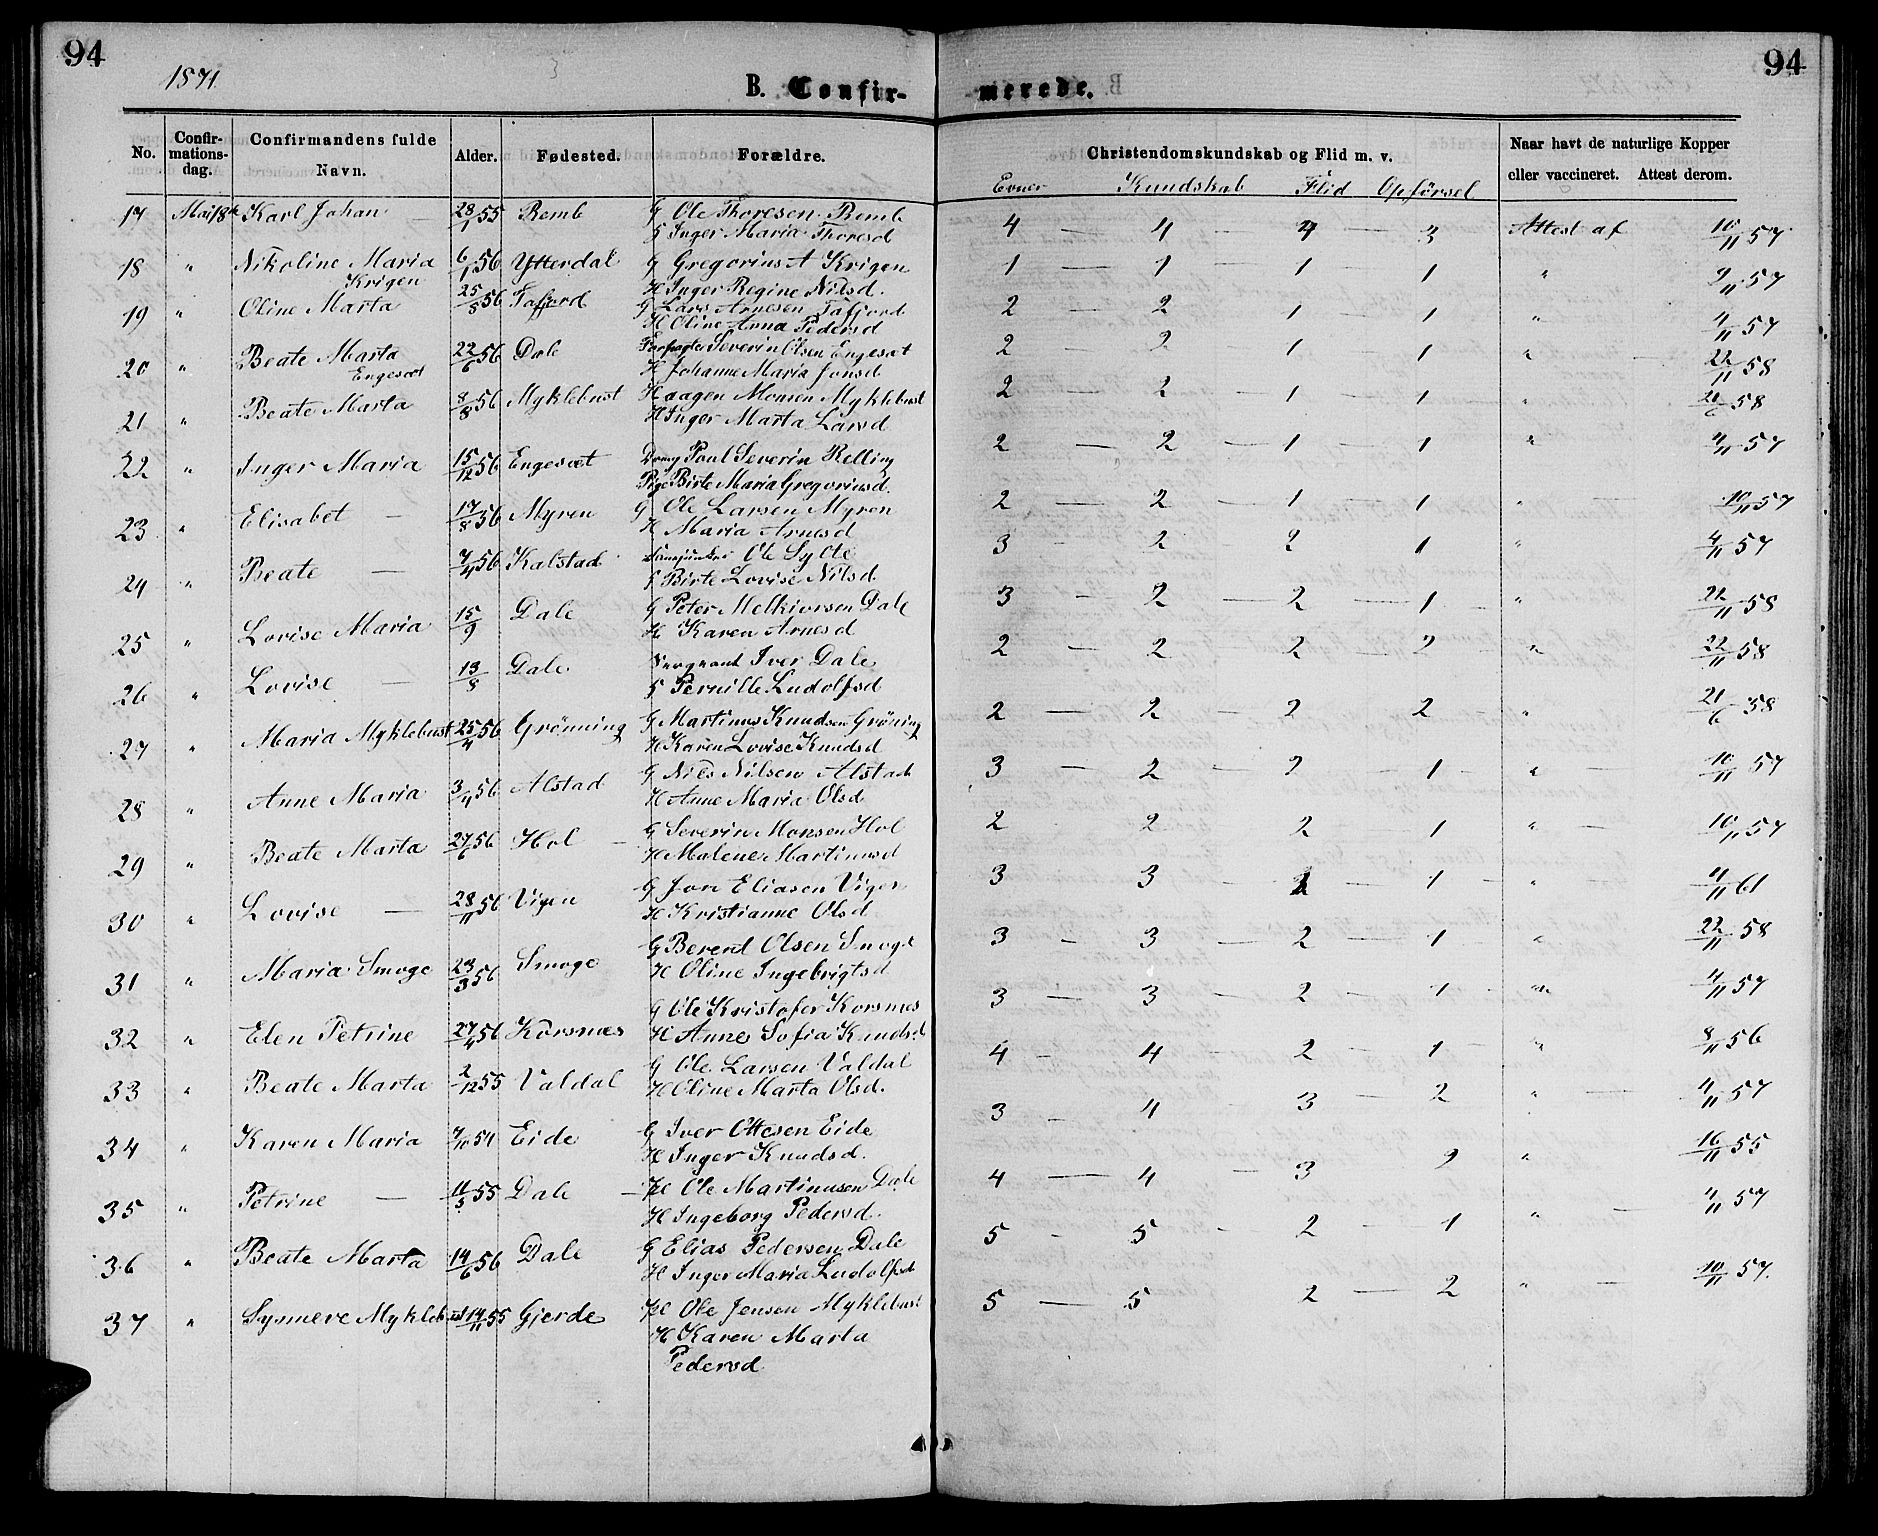 94
1871.
B. Confir-
No. Confir-mations-dag. Confirmandens fulde Navn. Alder. Fødested. Forældre.
17 Mai 18de Karl Johan — 28/1 55 Remb G Ole Thoresen Remb
G Inger Maria Thoresd
18 " Nikoline Maria 6/1 56 Ytterdal G Gregorius A Krigen
Krigen H Inger Regine Nilsd.
19 " Oline Marta 25/8 56 Tafjord G Lars Arnesen Tafjord
H Oline Anna Pedersd
20 " Beate Marta 22/6 56 Dale Severin Olsen Engesæt
Engesæt H Johanne Maria Jonsd
21 " Beate Marta 8/8 56 Myklebust Haagen Monsen Myklebust
H Inger Marta Larsd
22 " Inger Maria 15/12 56 Engesæt Poul Severin Relling
Pige Birte Maria Gregoriusd.
23 " Elisabet — 17/8 56 Myren G Ole Larsen Myren
H Maria Arnesd
24 " Beate — 7/4 56 Kalstad Ole Sylte
Birte Lovise Nilsd
25 " Lovise Maria 15/9 Dale G Peter Melkiorsen Dale
H Karen Arnesd
26 " Lovise — 13/8 Dale Sergeant Iver Dale
Pernille Ludolfsd
27 " Maria Myklebust 25/4 56 Grönning G Martinus Knudsen Gröning
H Karen Lovise Knudsd
28 " Anne Maria 3/4 56 Alstad G Nils Nilsen Alstad
H Anne Maria Olsd
29 " Beate Marta 27/6 56 Hol — G Severin Monsen Hol
H Malene Martinusd
30 " Lovise — 28/11 56 Vigen G Jon Eliasen Vigen
H Kristianne Olsd
31 " Maria Smoge 23/3 56 Smoge G Berent Olsen Smoge
H Oline Ingebrigtsd
32 " Elen Petrine 27/4 56 Korsnæs G Ole Kristofer Korsnes
H Anne Sofia Knudsd
33 " Beate Marta 2/12 55 Valdal G Ole Larsen Valdal
H Oline Marta Olsd.
34 " Karen Maria 7/10 54 Eide G Iver Ottesen Eide
H Inger Knudsd.
35 " Petrine — 11/5 55 Dale — Ole Martinusen Dale
H Ingeborg Pedersd
36 " Beate Marta 14/6 56 Dale G Elias Pedersen Dale
H Inger Maria Ludolfsd
37 " Synnere Myklebust 14/11 55 Gjerde Ole Jensen Myklebust
H Karen Marta
Pedersd
94
merede.
Christendomskundskab og Flid m. v. Naar havt de naturlige Kopper
eller vaccineret. Attest derom.
Evner Kundskab Flid Opförsel
4 — 4 — 4 — 3 Attest af 10/11 57
1 — 1 — 1 — 1 " 9/11 57
2 — 2 — 1 — 1 " 4/11 57
2 — 2 — 1 — 1 " 22/11 58
2 — 2 — 1 — 1 " 21/6 58
2 — 2 — 1 — 1 " 4/11 57
2 — 2 — 1 — 1 " 10/11 57
3 — 2 — 2 — 1 " 4/11 57
3 — 2 — 2 — 1 — " 22/11 58
2 — 2 — 2 — 2 — " 22/11 58
2 — 2 — 2 2 " 21/6 58
3 — 2 — 2 — 1 — " 10/11 57
2 2 2 1 " — 10/11 57
3 3 — 1 — " 4/11 61
3 — 3 — 2 — 1 " 22/11 58
3 — 3 — 2 — 1 — " 4/11 57
4 — 4 — 2 — 1 — " 8/11 56
3 — 4 — 3 — 2 " — 4/11 57
4 — 4 — 3 2 " 16/11 55
5 — 5 — 2 — 1 " — 4/11 57
5 — 5 2 — 2 " — 10/11 57.